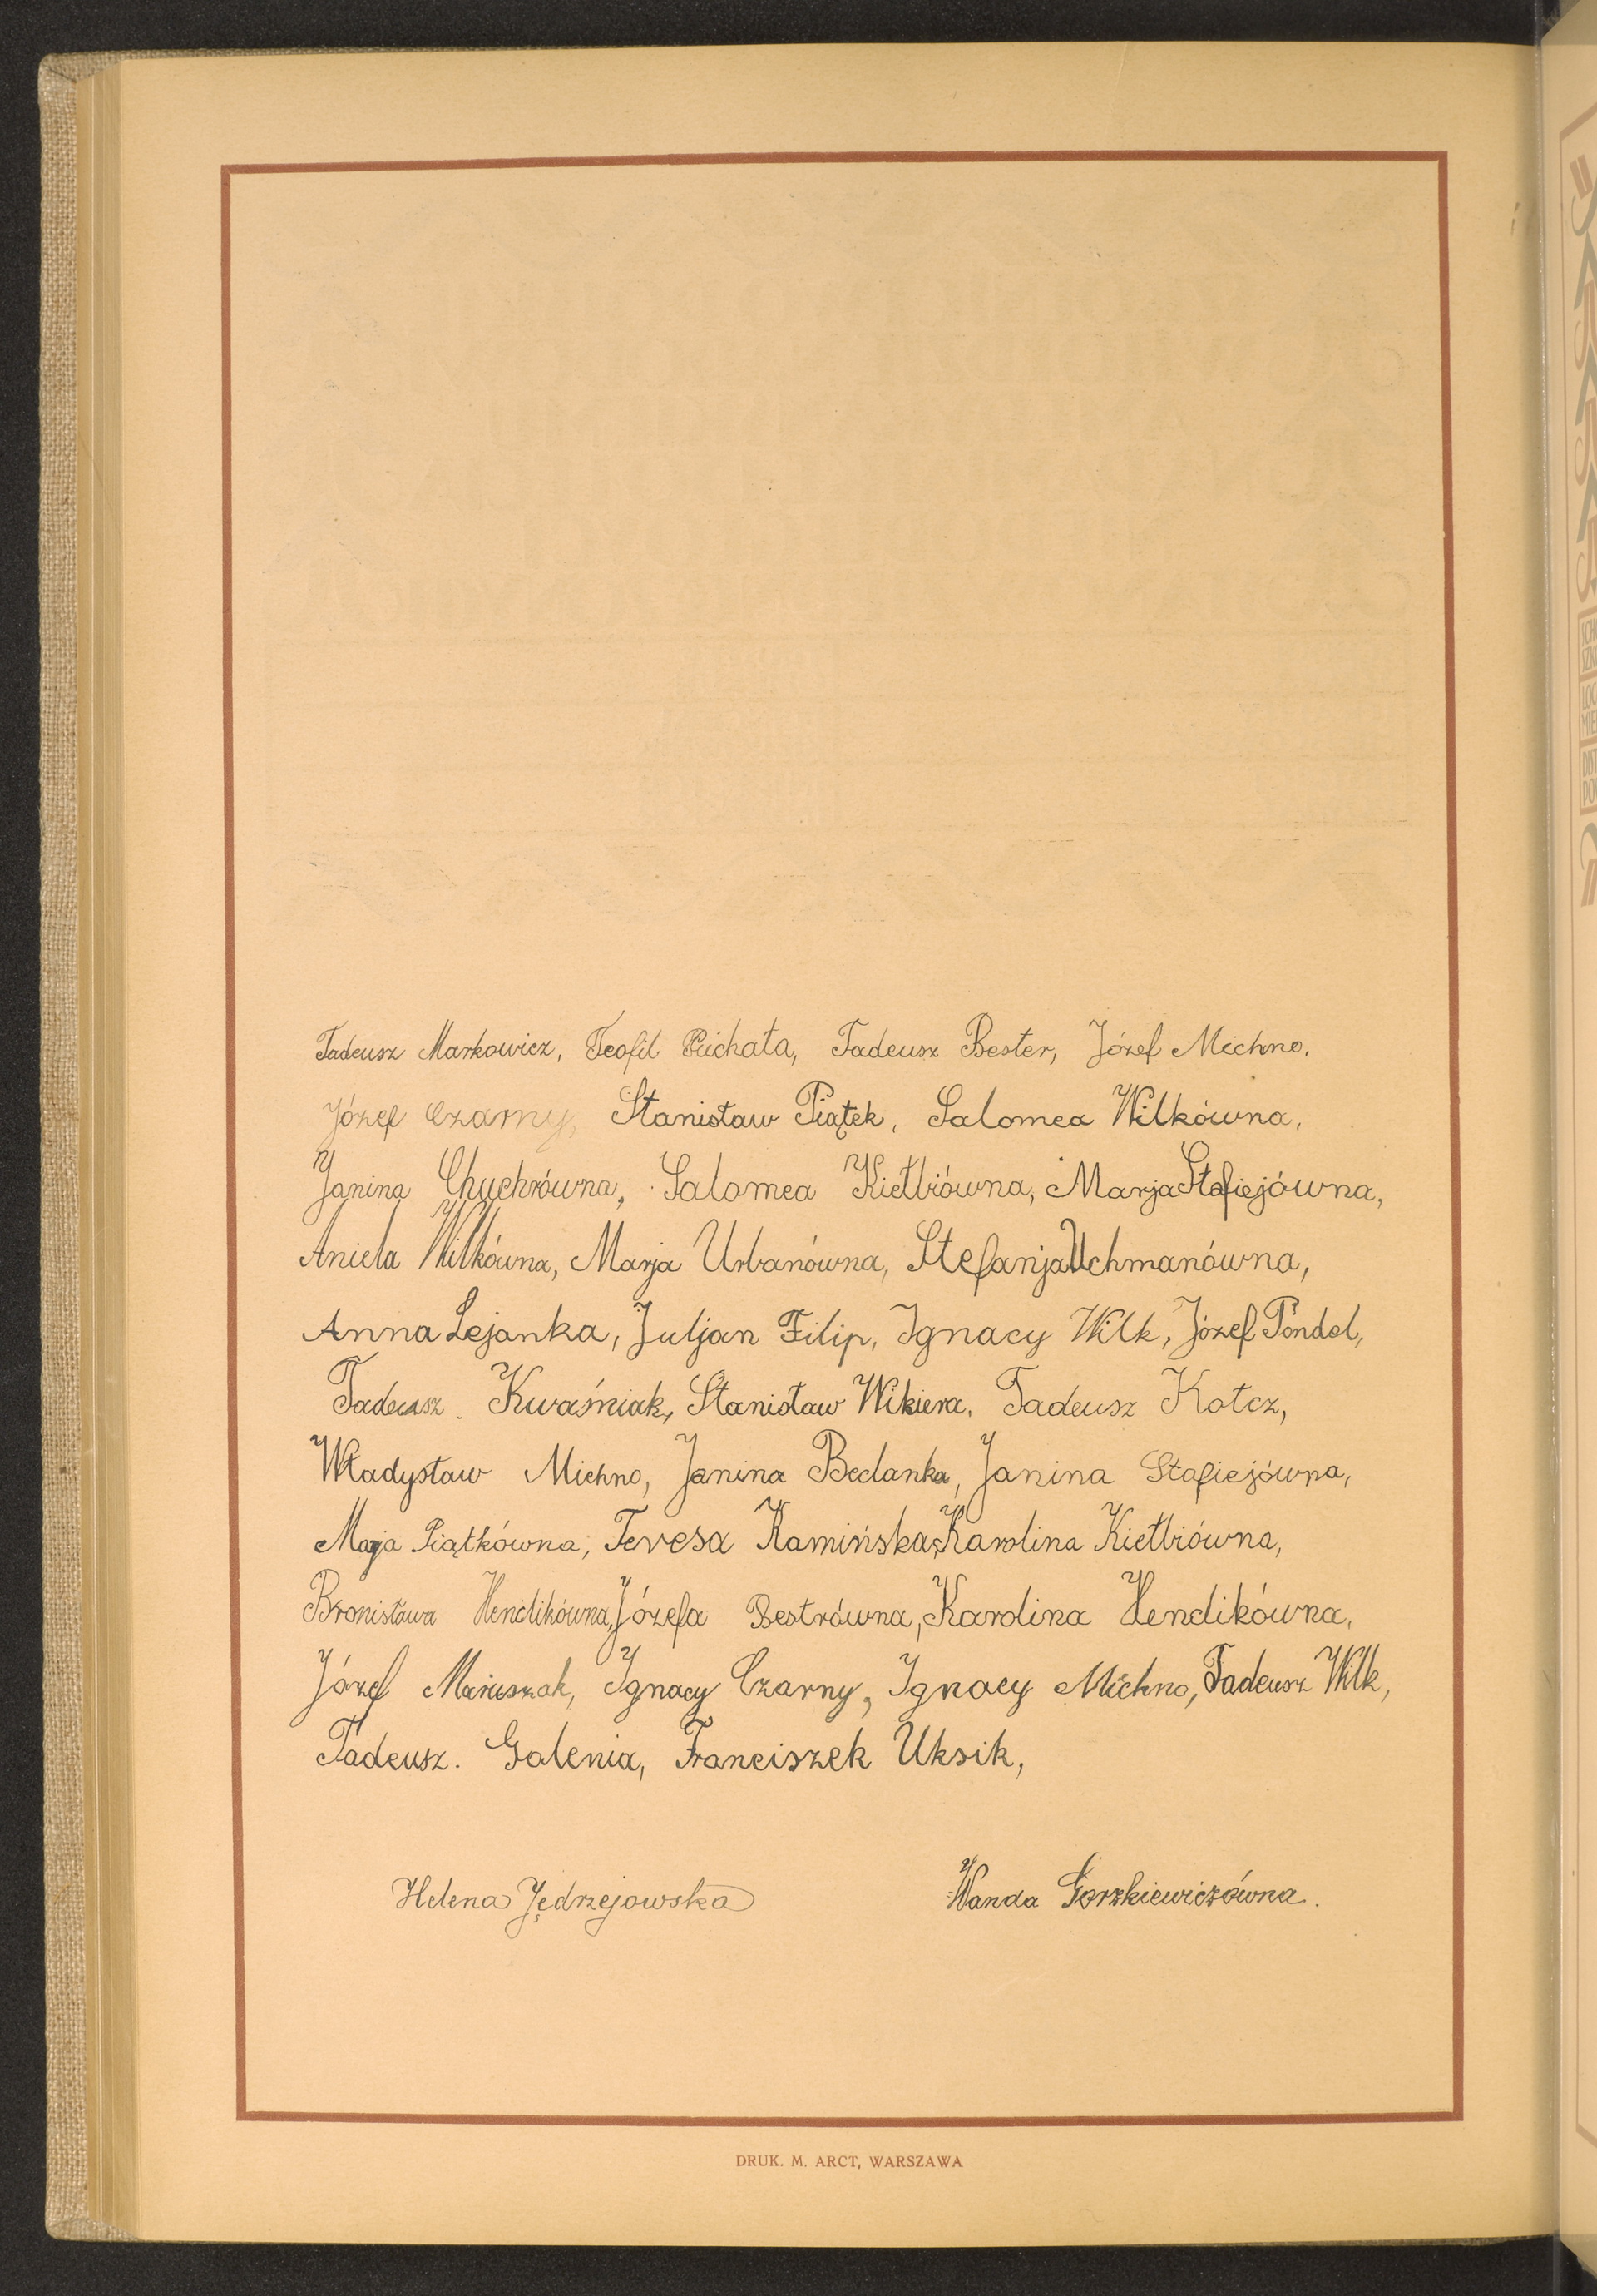 Tadeusz Markowicz, Teofil Puchała, Tadeusz Bester, Józef Michno.
Józef Czarny, Stanisław Piątek, Salomea Wilkówna,
Janina Chuchrówna, Salomea Kiełbiówna, Marja Stafiejówna,
Aniela Wilkówna, Marja Urbanówna, Stefanja Uchmanówna,
Anna Lejanka, Juljan Filip, Ignacy Wilk, Józef Pondel,
Tadeusz. Kwaśniak, Stanisław Wikiera. Tadeusz Kotcz,
Władysław Michno, Janina Bedanka, Janina Stafiejówna,
Marja Piątkówna, Teresa Kamińska, Karolina Kiełbiówna,
Bronisława Hendlikówna, Józefa Bestrówna, Karolina Hendikówna,
Józef Maruszak, Ignacy Czarny, Ignacy Michno, Tadeusz Wilk,
Tadeusz. Galenia, Franciszek Uksik,
Helena Jędrzejowska
Wanda Gorzkiewiczówna.
DRUK. M. ARCT, WARSZAWA